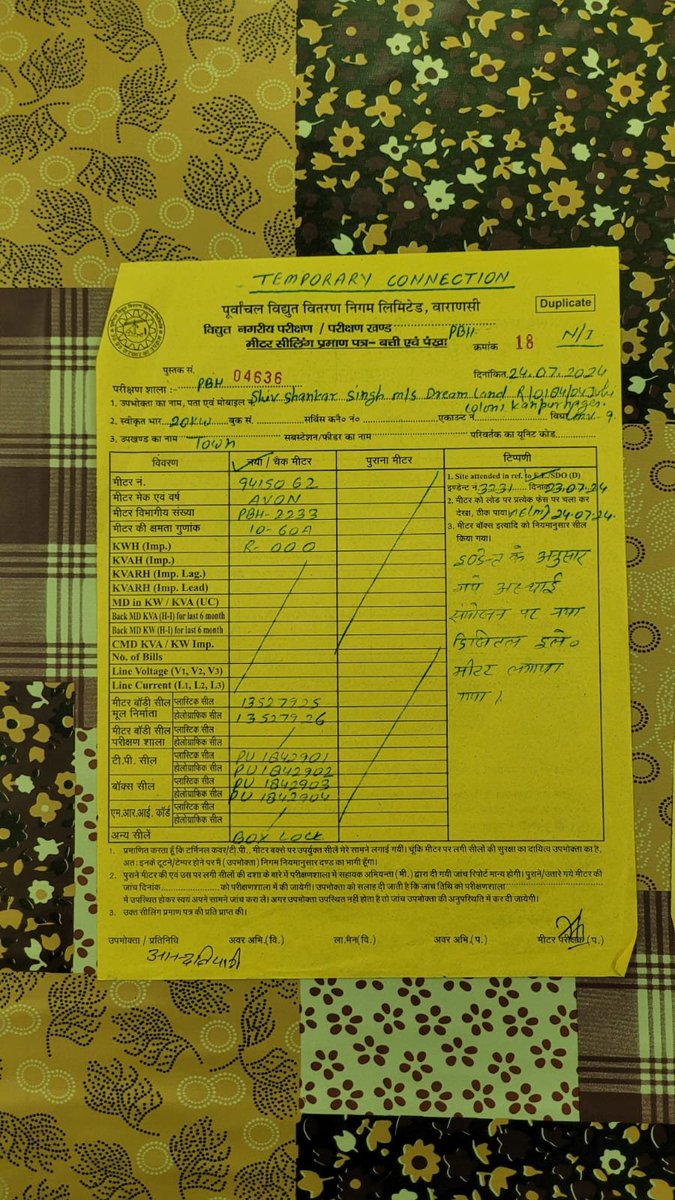 TEMPORARY CONNECTION
पूर्वांचल विद्युत वितरण निगम लिमिटेड, वाराणसी
Duplicate
विद्युत नगरीय परीक्षण / परीक्षण खण्ड PBH
मीटर सीलिंग प्रमाण पत्र- बत्ती एवं पंखा
क्रमांक 18 N/I
पुस्तक सं.
दिनांकित 24.07.2024
परीक्षण शाला :- PBH 04636
1. उपभोक्ता का नाम, पता एवं मोबाइल नं. Shiv Shankar Singh m/s Dream Land
Kanpur nager
2. स्वीकृत भार 20KW बुक सं. सर्विस कनै० नं० एकाउन्ट नं.
3. उपखण्ड का नाम Town सबस्टेशन/फीडर का नाम परिवर्तक का यूनिट कोड
विवरण नया / चैक मीटर पुराना मीटर टिप्पणी
मीटर नं. 9415062
मीटर मेक एवं वर्ष AVON
मीटर विभागीय संख्या PBH-2233
मीटर की क्षमता गुणांक 10-60A
KWH (Imp.) R-000
KVAH (Imp.)
KVARH (Imp. Lag.)
KVARH (Imp. Lead)
MD in KW / KVA (UC)
Back MD KVA (H-I) for last 6 month
Back MD KW (H-I) for last 6 month
CMD KVA / KW Imp.
No. of Bills
Line Voltage (V1, V2, V3)
Line Current (L1, L2, L3)
मीटर बॉडी सील प्लास्टिक सील 13527925
मूल निर्माता होलोग्राफिक सील 13527926
मीटर बॉडी सील प्लास्टिक सील
परीक्षण शाला होलोग्राफिक सील
टी.पी. सील प्लास्टिक सील PU1842901
होलोग्राफिक सील PU1842902
बॉक्स सील प्लास्टिक सील PU1842903
होलोग्राफिक सील PU1842904
एम.आर.आई. कॉर्ड प्लास्टिक सील
होलोग्राफिक सील
अन्य सीलें BOX LOCK
1. Site attended in ref. to E.E./SDO (D)
इण्डेन्ट नं. 3231 दिनांक 23.07.24
2. मीटर को लोड पर प्रत्येक फेस पर चला कर
देखा, ठीक पाया। 24.07.24
3. मीटर बॉक्स इत्यादि को नियमानुसार सील
किया गया।
इण्डेन्ट के अनुसार
नये अस्थाई
संयोजन पर नया
डिजिटल इले०
मीटर लगाया
गया।
1. प्रमाणित करता हूँ कि टर्मिनल कवर/टी.पी., मीटर बक्से पर उपर्युक्त सीलें मेरे सामने लगाई गयी। चूंकि मीटर पर लगी सीलों की सुरक्षा का दायित्व उपभोक्ता का है,
अत: इनके टूटने/टेम्पर होने पर मैं (उपभोक्ता) निगम नियमानुसार दण्ड का भागी हूँगा।
2. पुराने मीटर की एवं उस पर लगी सीलों की दशा के बारे में परीक्षणशाला में सहायक अभियन्ता (मी.) द्वारा दी गयी जांच रिपोर्ट मान्य होगी। पुराने/उतारे गये मीटर की
जांच दिनांक को परीक्षणशाला में की जायेगी। उपभोक्ता को सलाह दी जाती है कि जांच तिथि को परीक्षणशाला
में उपस्थित होकर स्वयं अपने सामने जांच करा लें। अगर उपभोक्ता उपस्थित नहीं होता है तो जांच उपभोक्ता की अनुपस्थिति में कर दी जायेगी।
3. उक्त सीलिंग प्रमाण पत्र की प्रति प्राप्त की।
उपभोक्ता / प्रतिनिधि अवर अभि.(वि.) ला.मैन(वि.) अवर अभि.(प.) मीटर परीक्षक (प.)